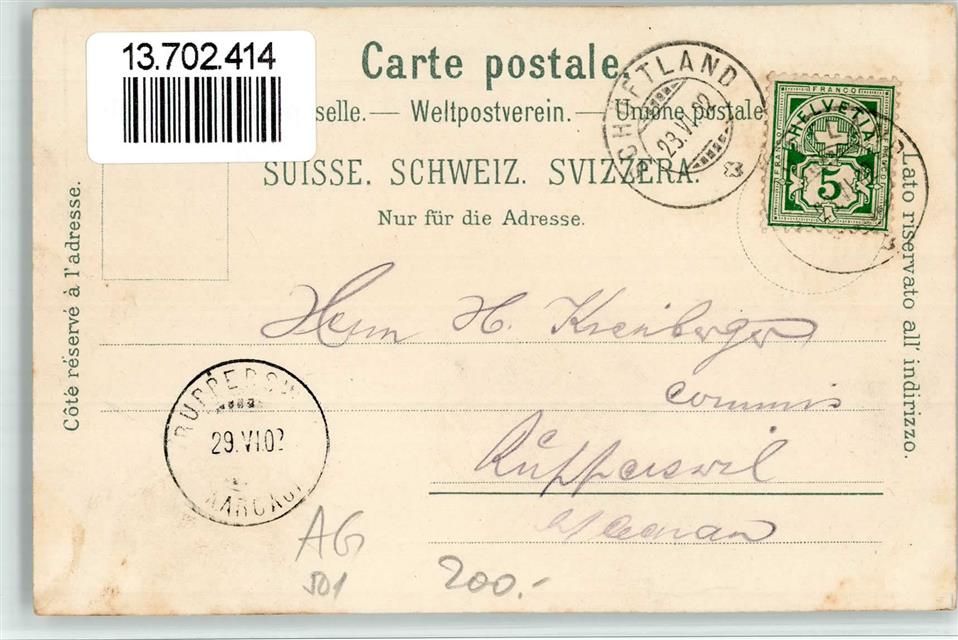 13.702.414
Carte postale.
selle. — Weltpostverein. — Unione postale
SUISSE. SCHWEIZ. SVIZZERA.
Nur für die Adresse.
Côté réservé à l'adresse.
Lato riservato all' indirizzo.
SCHÖFTLAND
FRANCO
HELVETIA
5
Herrn H. Kreiberger
commis
Rupperswil
RUPPERSW
29.VI.02
(AARGAU)
AG
501
200.-